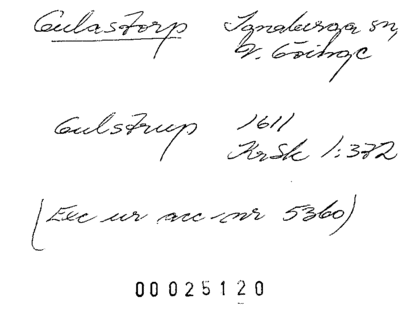 Gulastorp Ignaberga sn,
V. Göinge
Gulstrup 1611
KrSk 1:372
(Exc ur acc-nr 5360)
00025120